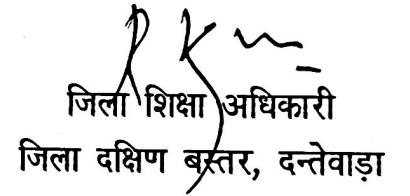 जिला शिक्षा अधिकारी
जिला दक्षिण बस्तर, दन्तेवाड़ा